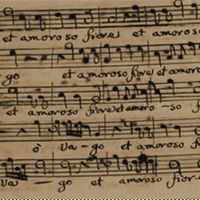 et amoroso fiore et amoroso
go et amoroso fiore et amoro
et amoroso fiore et amoro - so f
o va - go et amoroso f
va - go et amoroso fior